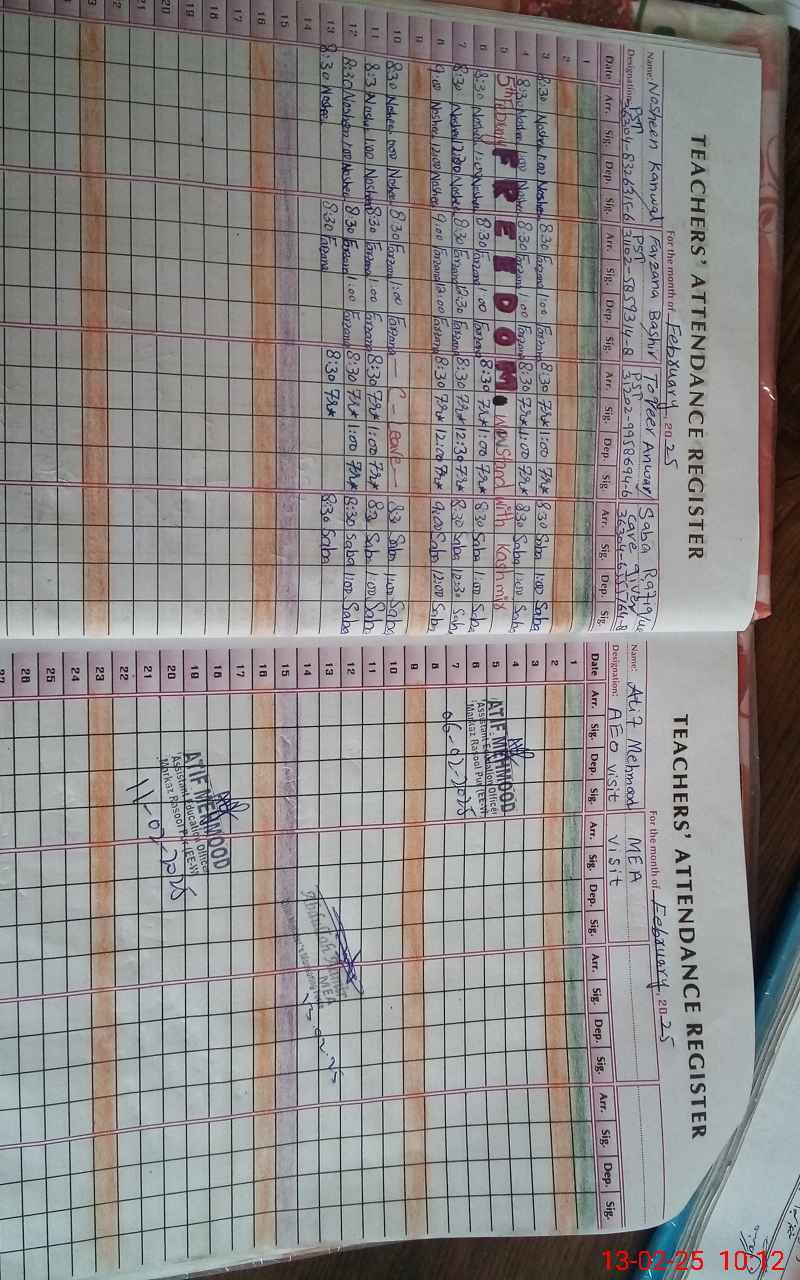 TEACHERS' ATTENDANCE REGISTER
For the month of February, 2025
Name: Nosheen Kanwal Farzana Bashir Toqeer Anwar Saba Rafique
Designation: PST PST PST Care giver
Date Arr. Sig. Dep. Sig. Arr. Sig. Dep. Sig. Arr. Sig. Dep. Sig. Arr. Sig. Dep. Sig.
1
2
3 8:30 Nosheen 1:00 Nosheen 8:30 Farzana 1:00 Farzana 8:30 1:00 8:30 Saba 1:00 Saba
4 8:30 Nosheen 1:00 Nosheen 8:30 Farzana 1:00 Farzana 8:30 1:00 8:30 Saba 1:00 Saba
5 5th February FREEDOM. We Stand with Kashmir
6 8:30 Nosheen 1:00 Nosheen 8:30 Farzana 1:00 Farzana 8:30 1:00 8:30 Saba 1:00 Saba
7 8:30 Nosheen 12:30 Nosheen 8:30 Farzana 12:30 Farzana 8:30 12:30 8:30 Saba 12:30 Saba
8 9:00 Nosheen 12:00 Nosheen 9:00 Farzana 12:00 Farzana 8:30 12:00 9:00 Saba 12:00 Saba
9
10 8:30 Nosheen 1:00 Nosheen 8:30 Farzana 1:00 Farzana — C - Leave — 8:30 Saba 1:00 Saba
11 8:30 Nosheen 1:00 Nosheen 8:30 Farzana 1:00 Farzana 8:30 1:00 8:30 Saba 1:00 Saba
12 8:30 Nosheen 1:00 Nosheen 8:30 Farzana 1:00 Farzana 8:30 1:00 8:30 Saba 1:00 Saba
13 8:30 Nosheen 8:30 Farzana 8:30 8:30 Saba
14
15
16
17
18
19
20
21
22
23
TEACHERS' ATTENDANCE REGISTER
For the month of February, 2025
Name: Atif Mehmood MEA
Designation: AEO visit visit
Date Arr. Sig. Dep. Sig. Arr. Sig. Dep. Sig. Arr. Sig. Dep. Sig. Arr. Sig. Dep. Sig.
1
2
3
4
5
6
7
8
9
10
11
12
13
14
15
16
17
18
19
20
21
22
23
24
25
26
27
ATIF MEHMOOD
Assistant Education Officer
Markaz Rasool Pur (EE-W)
06-02-2025
MEA
ATIF MEHMOOD
Assistant Education Officer
Markaz Rasool Pur (EE-W)
11-02-2025
13-02-25 10:12